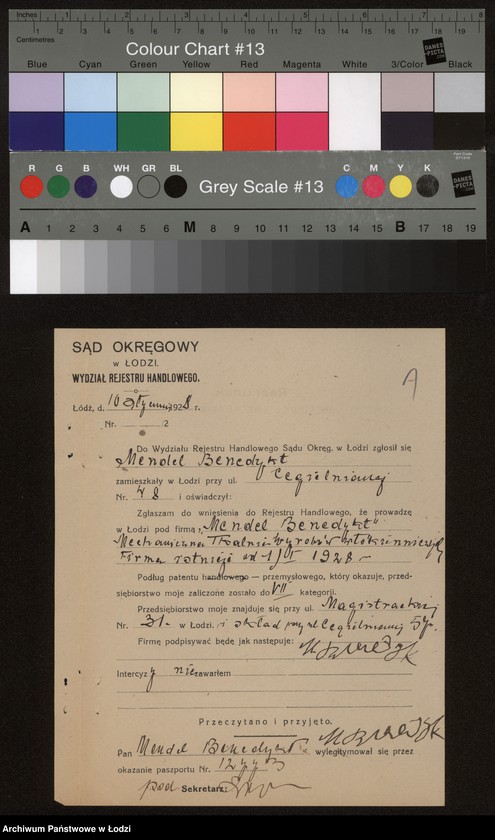 Inches 1 2 3 4 5 6 7 8
Centimetres 1 2 3 4 5 6 7 8 9 10 11 12 13 14 15 16 17 18 19
Colour Chart #13
DANES-PICTA
Blue Cyan Green Yellow Red Magenta White 3/Color Black
R G B WH GR BL Grey Scale #13 C M Y K
DANES-PICTA
A 1 2 3 4 5 6 M 8 9 10 11 12 13 14 15 B 17 18 19
SĄD OKRĘGOWY
w ŁODZI.
WYDZIAŁ REJESTRU HANDLOWEGO.
Łódź, d. 10 stycznia 1928 r.
Nr. 2
Do Wydziału Rejestru Handlowego Sądu Okręg. w Łodzi zgłosił się
Mendel Benedykt
zamieszkały w Łodzi przy ul. Cegielnianej
Nr. 48 i oświadczył:
Zgłaszam do wniesienia do Rejestru Handlowego, że prowadzę
w Łodzi pod firmą „Mendel Benedykt"
Mechaniczna Tkalnia wyrobów włókienniczych
Firma istnieje od 1/VI 1928
Podług patentu handlowego — przemysłowego, który okazuje, przed-
siębiorstwo moje zaliczone zostało do VII kategorji.
Przedsiębiorstwo moje znajduje się przy ul. Magistrackiej
Nr. 31. w Łodzi. i skład przy ul Cegielnianej 57.
Firmę podpisywać będę jak następuje:
Intercyzy nie zawarłem
Przeczytano i przyjęto.
Pan Mendel Benedykt wylegitymował się przez
okazanie paszportu Nr.
pod Sekretarz:
Archiwum Państwowe w Łodzi